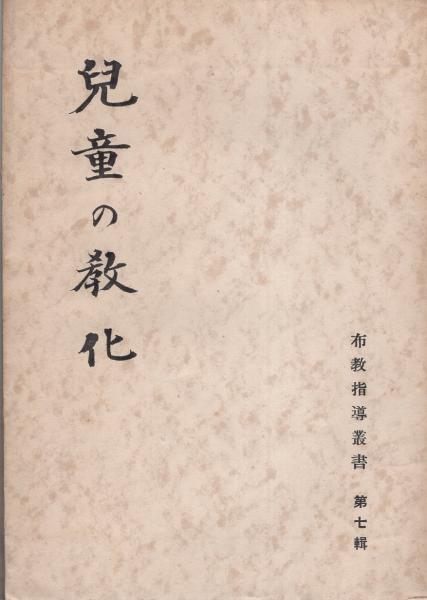 布教指導叢書 第七輯
兒童の教化